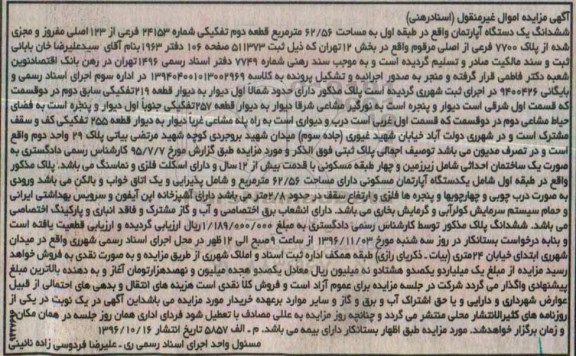 آگهی مزایده اموال غیرمنقول (اسنادرهنی)
ششدانگ یک دستگاه آپارتمان واقع در طبقه اول به مساحت ۶۲/۵۶ مترمربع قطعه دوم تفکیکی شماره ۲۴۱۵۳ فرعی از ۱۲۳ اصلی مفروز و مجزی
شده از پلاک ۷۷۰۰ فرعی از اصلی مرقوم واقع در بخش ۱۲ تهران که ذیل ثبت ۵۱۱۳۷۳ صفحه ۱۰۶ دفتر ۱۹۶۳ بنام آقای سیدعلیرضا خان بابائی
ثبت و سند مالکیت صادر و تسلیم گردیده است و به موجب سند رهنی شماره ۷۷۴۹ دفتر اسناد رسمی ۱۴۹۶ تهران در رهن بانک اقتصادنوین
شعبه دکتر فاطمی قرار گرفته و منجر به صدور اجرائیه و تشکیل پرونده به کلاسه ۱۳۹۴۰۴۰۰۱۰۱۳۰۰۲۹۶۹ در اداره سوم اجرای اسناد رسمی و
بایگانی ۹۴۰۰۴۲۶ در اجرای ثبت شهرری گردیده است پلاک مذکور دارای حدود شمالا اول دیوار به دیوار قطعه ۲۱۹ تفکیکی سابق دوم در دوقسمت
که قسمت اول شرقی است دیوار و پنجره است به نورگیر مشاعی شرقا دیوار به دیوار قطعه ۲۵۷ تفکیکی جنوبا اول دیوار و پنجره است به فضای
حیاط مشاعی دوم در دوقسمت که قسمت اول غربی است درب و دیواری است به راه پله مشاعی غربا دیوار به دیوار قطعه ۲۵۵ تفکیکی کف و سقف
مشترک است و در شهرری دولت آباد خیابان شهید غیوری (جاده سوم) میدان شهید بروجردی کوچه شهید مرتضی بیاتی پلاک ۲۹ واحد دوم واقع
است و در تصرف مدیون می باشد توصیف اجمالی پلاک ثبتی فوق الذکر و مورد مزایده طبق گزارش مورخ ۹۵/۷/۷ کارشناس رسمی دادگستری به
صورت یک ساختمان احداثی شامل زیرزمین و چهار طبقه مسکونی با قدمت بیش از ۱۲ سال و دارای اسکلت فلزی و نماسنگ می باشد. پلاک مذکور
واقع در طبقه اول شامل یکدستگاه آپارتمان مسکونی دارای مساحت ۶۲/۵۶ مترمربع و شامل پذیرایی و یک اتاق خواب و بالکن می باشد ورودی
به صورت درب چوبی و چهارچوبها و پنجره ها فلزی و ارتفاع سقف در حدود ۲/۸متر می باشد دارای آشپزخانه اپن آیفون و سرویس بهداشتی ایرانی
و حمام سیستم سرمایش کولرآبی و گرمایش بخاری می باشد. دارای انشعاب برق اختصاصی و آب و گاز مشترک و فاقد انباری و پارکینگ اختصاصی
می باشد. ششدانگ پلاک مذکور توسط کارشناس رسمی دادگستری به مبلغ ۱/۱۸۹/۰۰۰/۰۰۰ریال ارزیابی گردیده و ارزیابی قطعیت یافته است
و بنابه درخواست بستانکار در روز سه شنبه مورخ ۱۳۹۶/۱۱/۰۳ از ساعت ۹صبح الی ۱۲ ظهر در محل اجرای اسناد رسمی شهرری واقع در میدان
شهرری ابتدای خیابان ۲۴متری (بیات ـ ذکریای رازی) طبقه همکف اداره ثبت اسناد و املاک شهرری از طریق مزایده و به صورت نقدی به فروش خواهد
رسید مزایده از مبلغ یک میلیاردو یکصدو هشتادو نه میلیون ریال معادل یکصدو هجده میلیون و نهصدهزارتومان آغاز و به دهنده بالاترین مبلغ
پیشنهادی واگذار می گردد شرکت در جلسه مزایده برای عموم آزاد است و فروش کلا نقدی است هزینه های انتقال و بدهی های احتمالی از قبیل
عوارض شهرداری و دارایی و یا حق اشتراک آب و برق و گاز و سایر موارد برعهده خریدار مورد مزایده می باشد این آگهی در یک نوبت در یکی از
روزنامه های کثیرالانتشار محلی منتشر می گردد و چنانچه روز مزایده به عللی مصادف با تعطیل شود فردای اداری همان روز جلسه در همان مکان
و زمان برگزار خواهدشد. مورد مزایده طبق اظهار بستانکار دارای بیمه می باشد. م ـ الف ۵۸۵۷ تاریخ انتشار ۱۳۹۶/۱۰/۱۶
مسئول واحد اجرای اسناد رسمی ری ـ علیرضا فردوسی زاده نائینی